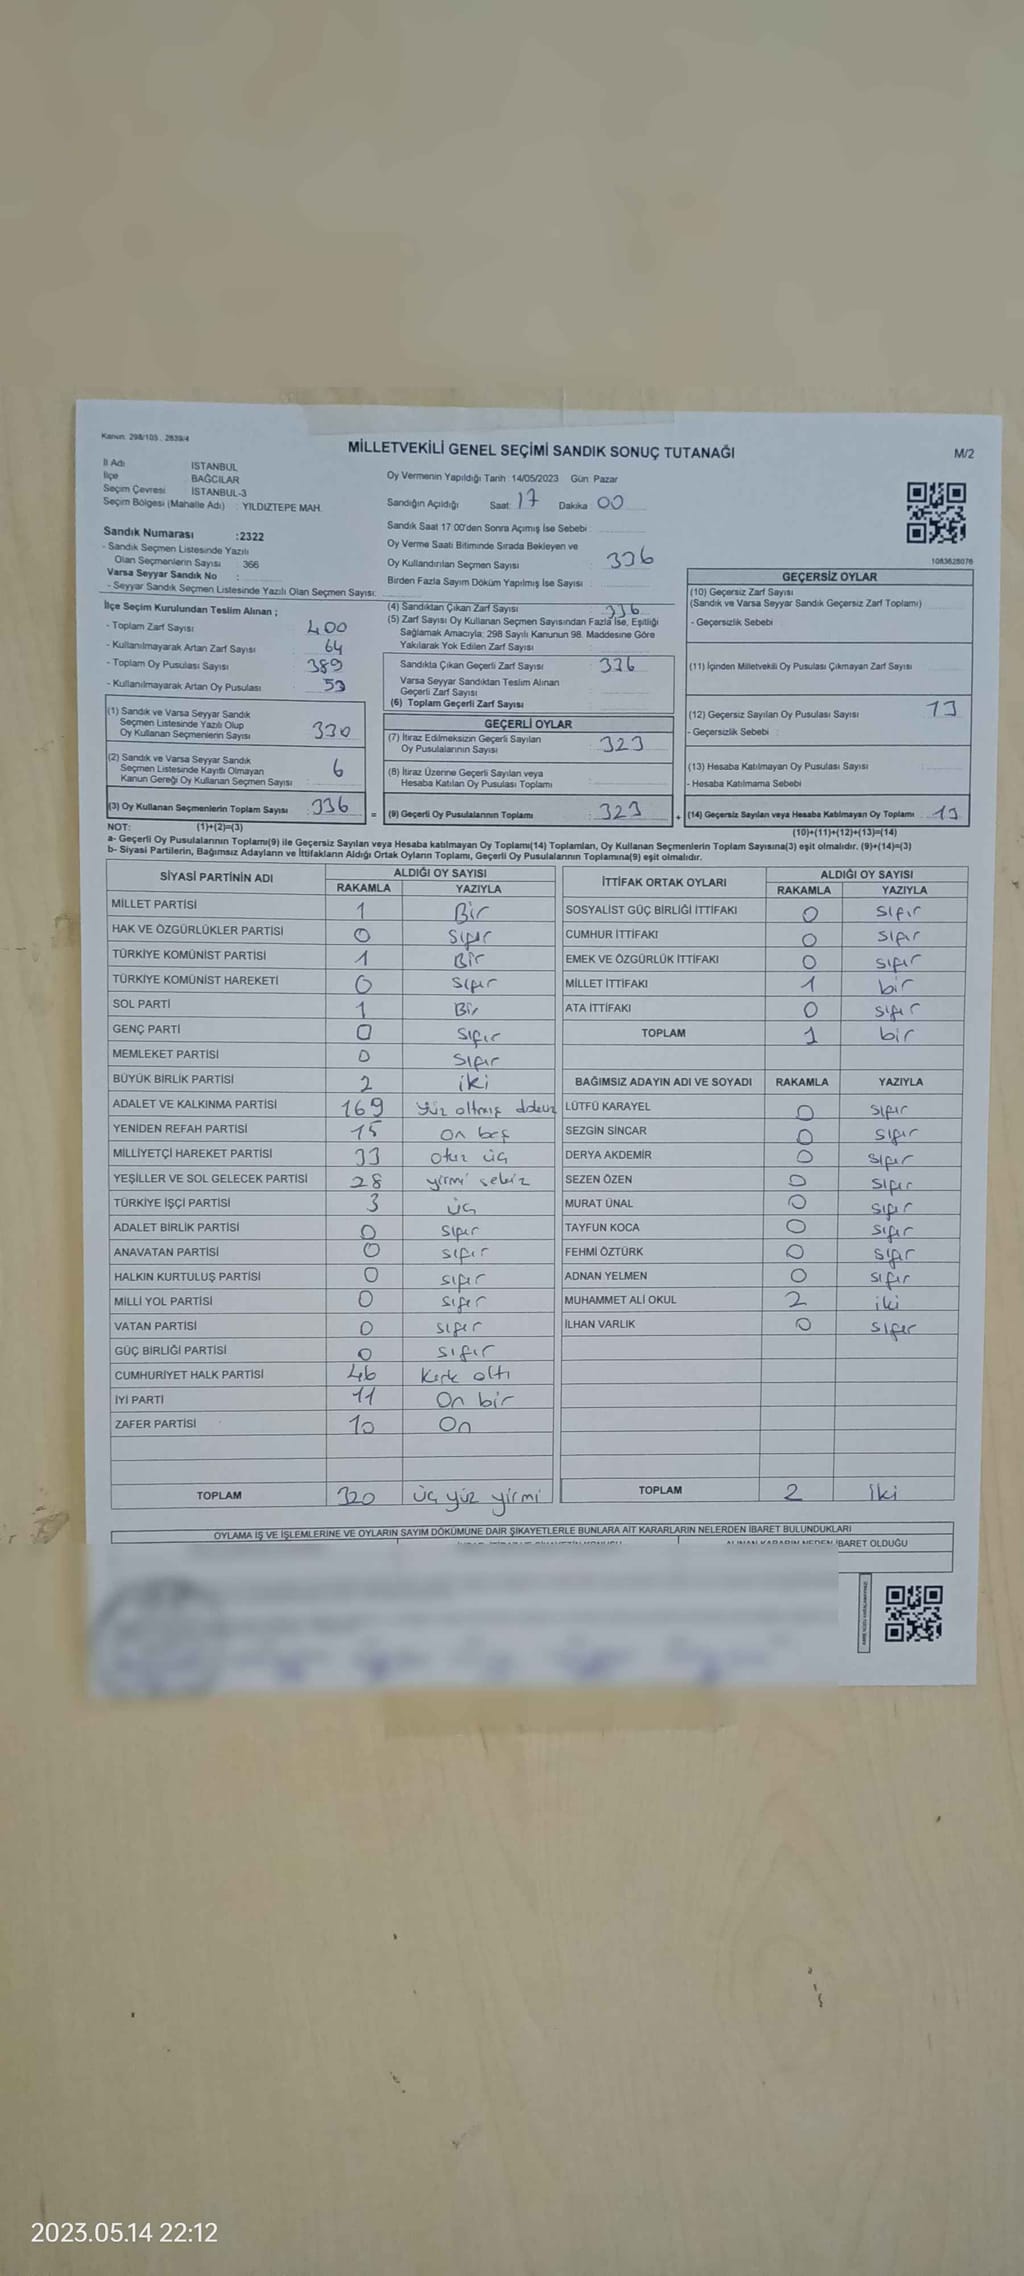 Kanun: 298/105 , 2839/4
MİLLETVEKİLİ GENEL SEÇİMİ SANDIK SONUÇ TUTANAĞI
M/2
İl Adı İSTANBUL
İlçe BAĞCILAR
Seçim Çevresi İSTANBUL-3
Seçim Bölgesi (Mahalle Adı) : YILDIZTEPE MAH.
Sandık Numarası :2322
- Sandık Seçmen Listesinde Yazılı
Olan Seçmenlerin Sayısı : 366
Varsa Seyyar Sandık No :
- Seyyar Sandık Seçmen Listesinde Yazılı Olan Seçmen Sayısı:
Oy Vermenin Yapıldığı Tarih : 14/05/2023 Gün: Pazar
Sandığın Açıldığı Saat: 17 Dakika 00
Sandık Saat 17:00'den Sonra Açımış İse Sebebi :
Oy Verme Saati Bitiminde Sırada Bekleyen ve
Oy Kullandırılan Seçmen Sayısı : 336
Birden Fazla Sayım Döküm Yapılmış İse Sayısı :
1083628076
İlçe Seçim Kurulundan Teslim Alınan ;
- Toplam Zarf Sayısı : 400
- Kullanılmayarak Artan Zarf Sayısı : 64
- Toplam Oy Pusulası Sayısı : 389
- Kullanılmayarak Artan Oy Pusulası : 53
(1) Sandık ve Varsa Seyyar Sandık
Seçmen Listesinde Yazılı Olup
Oy Kullanan Seçmenlerin Sayısı : 330
(2) Sandık ve Varsa Seyyar Sandık
Seçmen Listesinde Kayıtlı Olmayan
Kanun Gereği Oy Kullanan Seçmen Sayısı : 6
(3) Oy Kullanan Seçmenlerin Toplam Sayısı : 336
(4) Sandıktan Çıkan Zarf Sayısı : 336
(5) Zarf Sayısı Oy Kullanan Seçmen Sayısından Fazla İse, Eşitliği
Sağlamak Amacıyla; 298 Sayılı Kanunun 98. Maddesine Göre
Yakılarak Yok Edilen Zarf Sayısı :
Sandıkta Çıkan Geçerli Zarf Sayısı : 336
Varsa Seyyar Sandıktan Teslim Alınan
Geçerli Zarf Sayısı
(6) Toplam Geçerli Zarf Sayısı :
GEÇERLİ OYLAR
(7) İtiraz Edilmeksizin Geçerli Sayılan
Oy Pusulalarının Sayısı : 323
(8) İtiraz Üzerine Geçerli Sayılan veya
Hesaba Katılan Oy Pusulası Toplamı :
= (9) Geçerli Oy Pusulalarının Toplamı : 323
GEÇERSİZ OYLAR
(10) Geçersiz Zarf Sayısı
(Sandık ve Varsa Seyyar Sandık Geçersiz Zarf Toplamı) :
- Geçersizlik Sebebi
(11) İçinden Milletvekili Oy Pusulası Çıkmayan Zarf Sayısı :
(12) Geçersiz Sayılan Oy Pusulası Sayısı : 13
- Geçersizlik Sebebi :
(13) Hesaba Katılmayan Oy Pusulası Sayısı :
- Hesaba Katılmama Sebebi
+ (14) Geçersiz Sayılan veya Hesaba Katılmayan Oy Toplamı : 13
NOT: (1)+(2)=(3)
(10)+(11)+(12)+(13)=(14)
a- Geçerli Oy Pusulalarının Toplamı(9) ile Geçersiz Sayılan veya Hesaba katılmayan Oy Toplamı(14) Toplamları, Oy Kullanan Seçmenlerin Toplam Sayısına(3) eşit olmalıdır. (9)+(14)=(3)
b- Siyasi Partilerin, Bağımsız Adayların ve İttifakların Aldığı Ortak Oyların Toplamı, Geçerli Oy Pusulalarının Toplamına(9) eşit olmalıdır.
SİYASİ PARTİNİN ADI ALDIĞI OY SAYISI
RAKAMLA YAZIYLA
MİLLET PARTİSİ 1 Bir
HAK VE ÖZGÜRLÜKLER PARTİSİ 0 Sıfır
TÜRKİYE KOMÜNİST PARTİSİ 1 Bir
TÜRKİYE KOMÜNİST HAREKETİ 0 Sıfır
SOL PARTİ 1 Bir
GENÇ PARTİ 0 Sıfır
MEMLEKET PARTİSİ 0 Sıfır
BÜYÜK BİRLİK PARTİSİ 2 iki
ADALET VE KALKINMA PARTİSİ 169 yüz altmış dokuz
YENİDEN REFAH PARTİSİ 15 On beş
MİLLİYETÇİ HAREKET PARTİSİ 33 otuz üç
YEŞİLLER VE SOL GELECEK PARTİSİ 28 yirmi sekiz
TÜRKİYE İŞÇİ PARTİSİ 3 üç
ADALET BİRLİK PARTİSİ 0 sıfır
ANAVATAN PARTİSİ 0 sıfır
HALKIN KURTULUŞ PARTİSİ 0 sıfır
MİLLİ YOL PARTİSİ 0 sıfır
VATAN PARTİSİ 0 sıfır
GÜÇ BİRLİĞİ PARTİSİ 0 sıfır
CUMHURİYET HALK PARTİSİ 46 Kırk altı
İYİ PARTİ 11 On bir
ZAFER PARTİSİ 10 On
TOPLAM 320 üç yüz yirmi
İTTİFAK ORTAK OYLARI ALDIĞI OY SAYISI
RAKAMLA YAZIYLA
SOSYALİST GÜÇ BİRLİĞİ İTTİFAKI 0 sıfır
CUMHUR İTTİFAKI 0 sıfır
EMEK VE ÖZGÜRLÜK İTTİFAKI 0 sıfır
MİLLET İTTİFAKI 1 bir
ATA İTTİFAKI 0 sıfır
TOPLAM 1 bir
BAĞIMSIZ ADAYIN ADI VE SOYADI RAKAMLA YAZIYLA
LÜTFÜ KARAYEL 0 sıfır
SEZGİN SİNCAR 0 sıfır
DERYA AKDEMİR 0 sıfır
SEZEN ÖZEN 0 sıfır
MURAT ÜNAL 0 sıfır
TAYFUN KOCA 0 sıfır
FEHMİ ÖZTÜRK 0 sıfır
ADNAN YELMEN 0 sıfır
MUHAMMET ALİ OKUL 2 iki
İLHAN VARLIK 0 sıfır
TOPLAM 2 iki
OYLAMA İŞ VE İŞLEMLERİNE VE OYLARIN SAYIM DÖKÜMÜNE DAİR ŞİKAYETLERLE BUNLARA AİT KARARLARIN NELERDEN İBARET BULUNDUKLARI
ALINAN KARARIN NEDEN İBARET OLDUĞU
2023.05.14 22:12